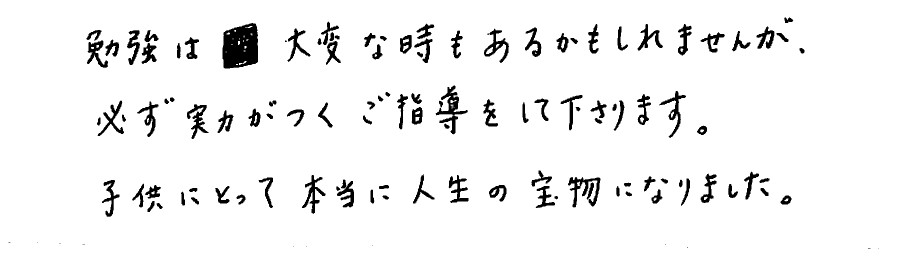 勉強は 大変な時もあるかもしれませんが、
必ず実力がつくご指導をして下さります。
子供にとって本当に人生の宝物になりました。